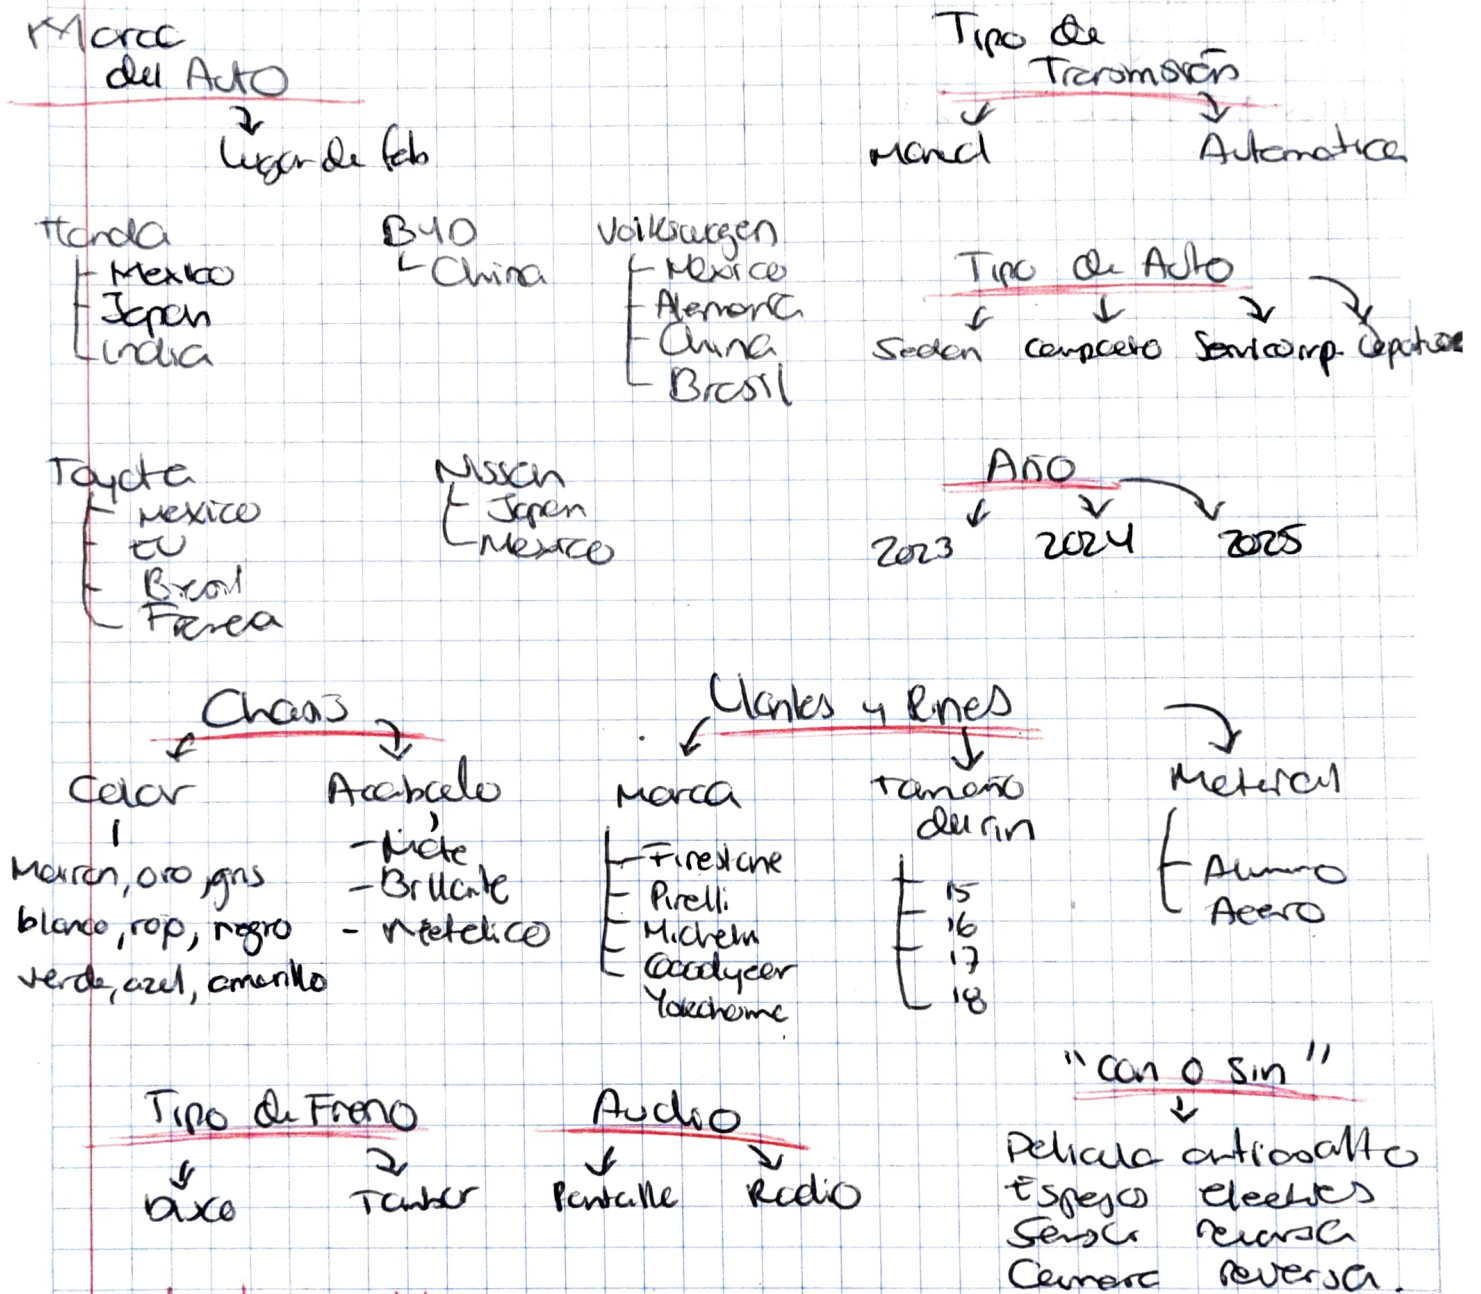 Marca
del Auto
Lugar de fab
Honda
Mexico
Japon
India
BYD
China
Volkswagen
Mexico
Alemania
China
Brasil
Toyota
Mexico
EU
Brasil
Nissan
Japon
Mexico
Tipo de
Transmisión
Manual
Automatica
Tipo de Auto
Sedan compacto Semicomp.
Año
2023 2024 2025
Chasis
Color
Marron, oro, gris
blanco, rojo, negro
verde, azul, amarillo
Acabado
- Mate
- Brillante
- Metalico
Llantas y Rines
Marca
Firestone
Pirelli
Michelin
Goodyear
Yokohama
Tamaño
del rin
15
16
17
18
Material
Aluminio
Acero
Tipo de Freno
Disco Tambor
Audio
Pantalla Radio
"Con o sin"
Pelicula antiasalto
Espejos electricos
Sensor reversa
Camara reversa.